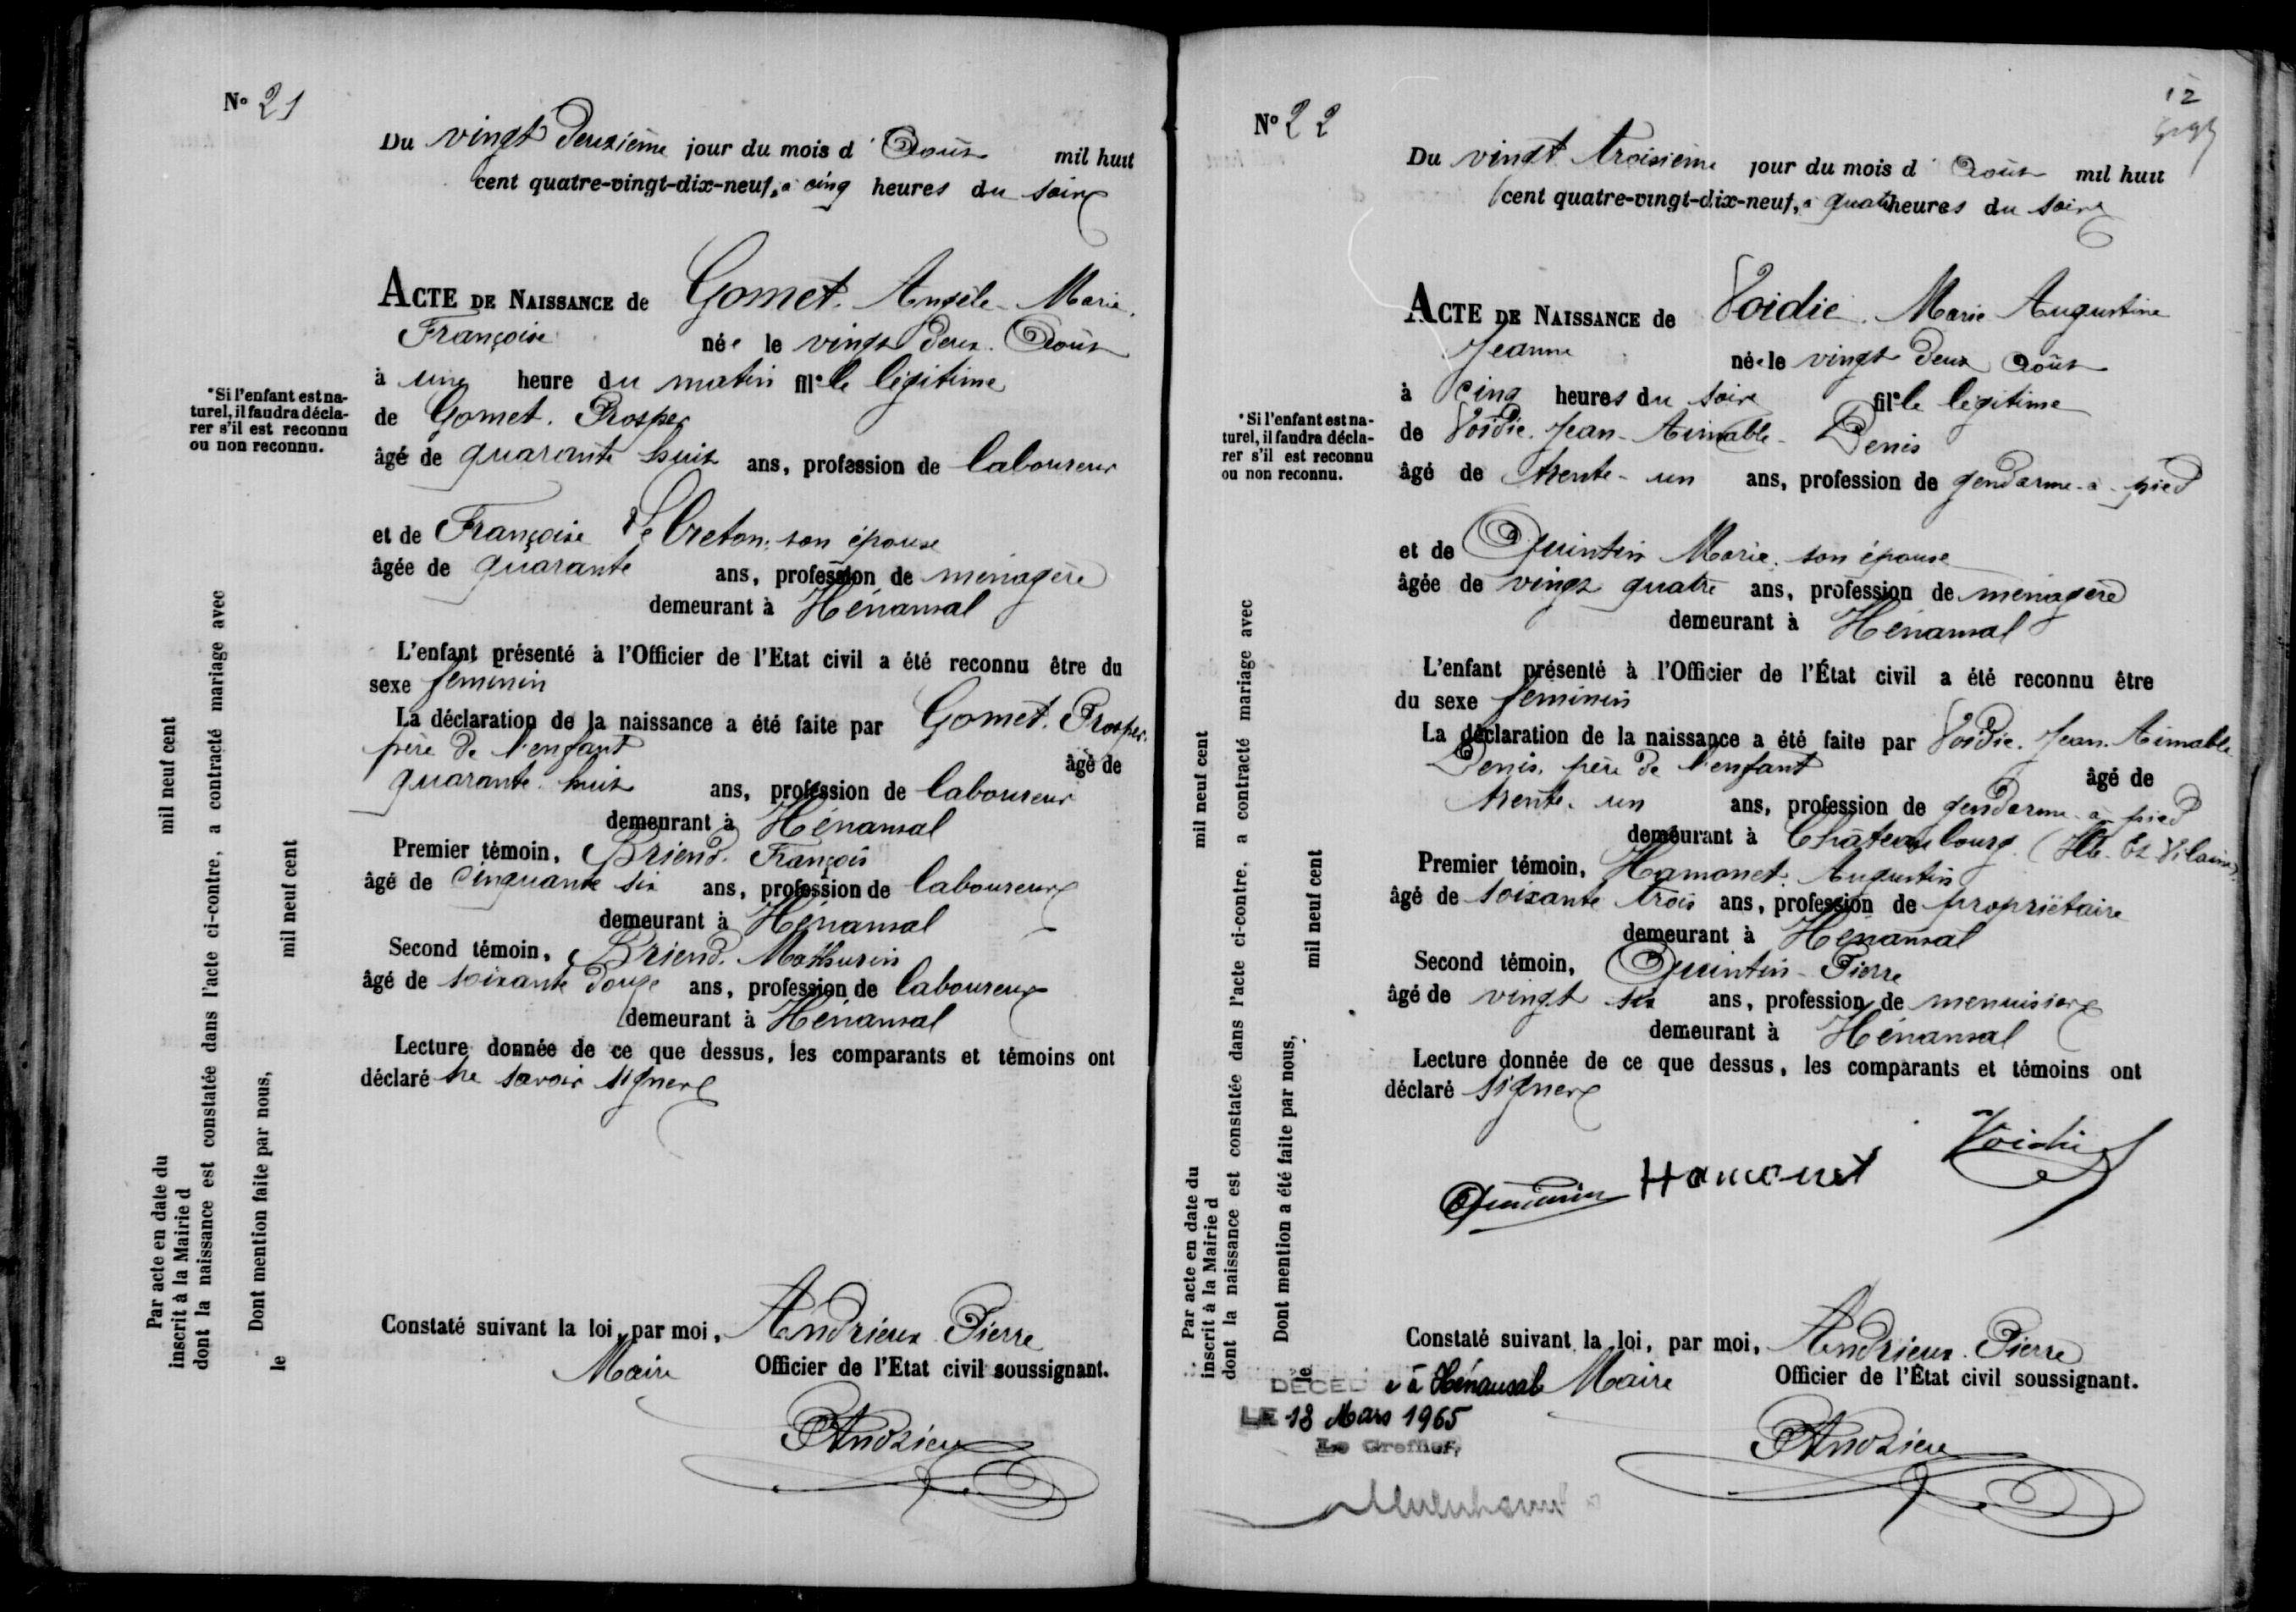 N° 21
Du vingt deuxième jour du mois d' Août mil huit
cent quatre-vingt-dix-neuf, à cinq heures du soir
ACTE DE NAISSANCE de Gomet. Angèle Marie.
Françoise née le vingt deux. Août
à une heure du matin fille légitime
*Si l'enfant est na-
turel, il faudra décla-
rer s'il est reconnu
ou non reconnu.
de Gomet. Prosper
âgé de quarante huit ans, profession de laboureur
et de Françoise Le Creton, son épouse
âgée de quarante ans, profession de ménagère
demeurant à Hénansal
L'enfant présenté à l'Officier de l'Etat civil a été reconnu être du
sexe féminin
La déclaration de la naissance a été faite par Gomet. Prosper.
père de l'enfant âgé de
quarante huit ans, profession de laboureur
demeurant à Hénansal
Premier témoin, Briend. François
âgé de cinquante six ans, profession de laboureur
demeurant à Hénansal
Second témoin, Briend. Mathurin
âgé de soixante douze ans, profession de laboureur
demeurant à Hénansal
Lecture donnée de ce que dessus, les comparants et témoins ont
déclaré ne savoir signer
Constaté suivant la loi, par moi, Andrieux Pierre
Maire Officier de l'Etat civil soussignant.
PAndrieux
Par acte en date du mil neuf cent
inscrit à la Mairie d
dont la naissance est constatée dans l'acte ci-contre, a contracté mariage avec
Dont mention faite par nous,
le mil neuf cent
12
N° 22
Du vingt troisième jour du mois d' Août mil huit
cent quatre-vingt-dix-neuf, à quatre heures du soir
ACTE DE NAISSANCE de Voidie. Marie Augustine
Jeanne née le vingt deux Août
à cinq heures du soir fille légitime
*Si l'enfant est na-
turel, il faudra décla-
rer s'il est reconnu
ou non reconnu.
de Voidie. Jean-Aimable-Denis
âgé de trente-un ans, profession de gendarme-à-pied
et de Quintin Marie, son épouse
âgée de vingt quatre ans, profession de ménagère
demeurant à Hénansal
L'enfant présenté à l'Officier de l'État civil a été reconnu être
du sexe féminin
La déclaration de la naissance a été faite par Voidie. Jean. Aimable
Denis, père de l'enfant âgé de
trente-un ans, profession de gendarme à pied
demeurant à Châteaubourg (Ille-Et-Vilaine).
Premier témoin, Hamonet. Augustin
âgé de soixante trois ans, profession de propriétaire
demeurant à Hénansal
Second témoin, Quintin-Pierre
âgé de vingt six ans, profession de menuisier
demeurant à Hénansal
Lecture donnée de ce que dessus, les comparants et témoins ont
déclaré signer
Voidie
Quintin Hamonet
Constaté suivant la loi, par moi, Andrieux. Pierre
Maire Officier de l'État civil soussignant.
PAndrieux
Par acte en date du mil neuf cent
inscrit à la Mairie d
dont la naissance est constatée dans l'acte ci-contre, a contracté mariage avec
Dont mention a été faite par nous,
le mil neuf cent
DÉCÉDÉe à Hénansal
LE 18 Mars 1965
Le Greffier,